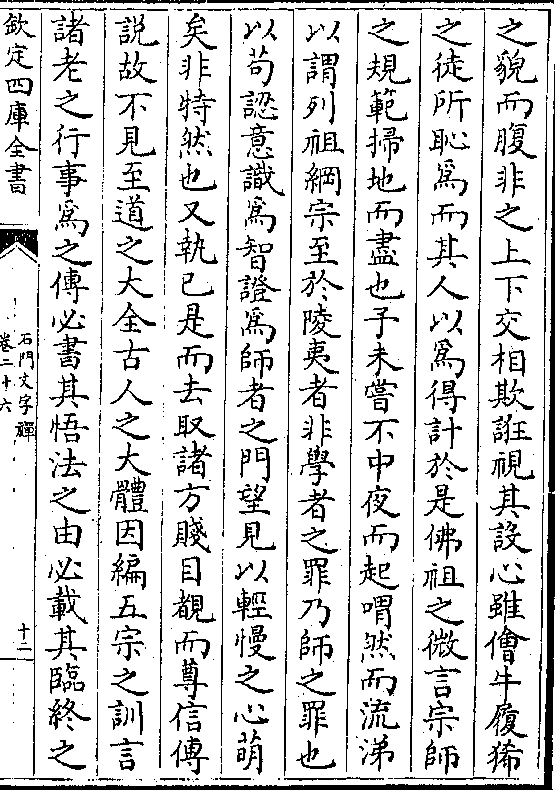 之貌而腹非之上下交相欺誑視其設心雖儈牛履狶
之徒所恥為而其人以為得計於是佛祖之微言宗師
之規範掃地而盡也予未嘗不中夜而起喟然而流涕
以謂列祖綱宗至於陵夷者非學者之罪乃師之罪也
以苟認意識為智證為師者之門望見以輕慢之心萌
矣非特然也又執已是而去取諸方賤目覩而尊信傳
說故不見至道之大全古人之大體因編五宗之訓言
諸老之行事為之傳必書其悟法之由必載其臨終之
欽定四庫全書
石門文字禪
卷二十六
十二